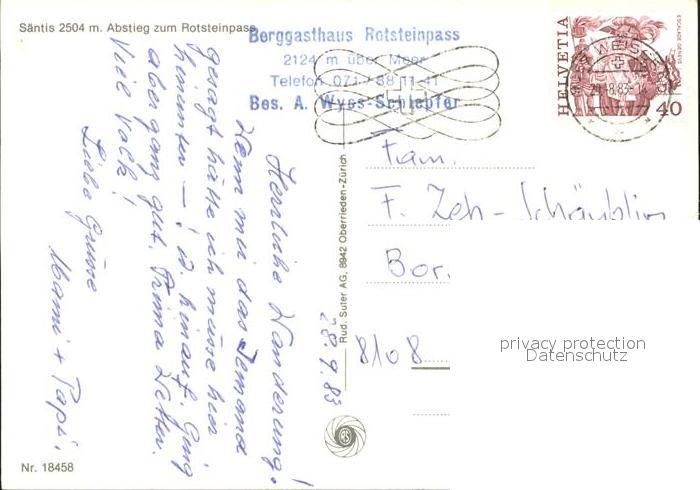 Säntis 2504 m. Abstieg zum Rotsteinpass
Berggasthaus Rotsteinpass
2124 m über Meer
Telefon 071 / 88 11 41
Bes. A. Wyss-Schlepfer
HELVETIA
ESCALADE GENÈVE
40
WEISS
28.9.83
Herrliche Wanderung!
Wenn mir das Jemand
gesagt hätte ich müsse hin
hinunter – u. hinauf. Ging
aber ganz gut. Prima Wetter.
Viel Volk!
Liebe Grüsse
Mami + Papi.
Rud. Suter AG, 8942 Oberrieden-Zürich
Fam.
F. Zeh-Schäublin
Bor.
8108
privacy protection
Datenschutz
Nr. 18458